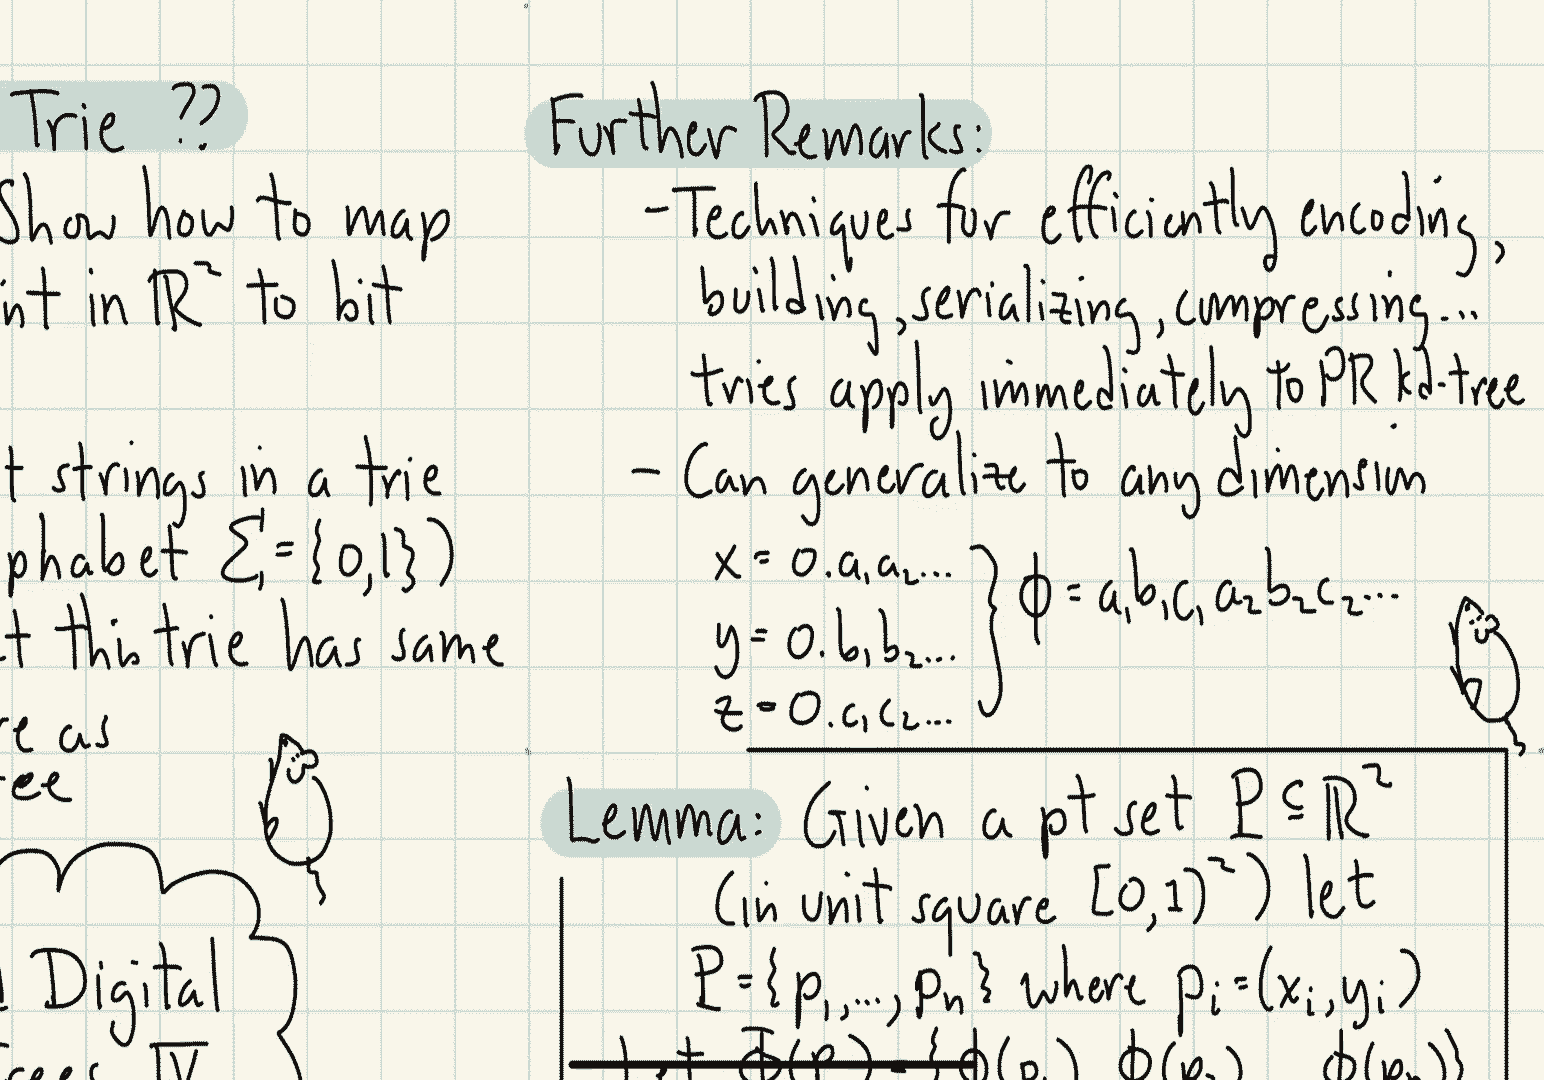 Trie ??
Show how to map
in ℝ² to bit
strings in a trie
Σ={0,1})
this trie has same
as
Digital
IV
Further Remarks:
- Techniques for efficiently encoding,
building, serializing, compressing...
tries apply immediately to PR kd-tree
- Can generalize to any dimension
x = 0.a₁a₂...
y = 0.b₁b₂...
z = 0.c₁c₂...
} ϕ = a₁b₁c₁a₂b₂c₂...
Lemma: Given a pt set P ⊆ ℝ²
(in unit square [0,1)²) let
P={p₁,...,pₙ} where pᵢ=(xᵢ,yᵢ)